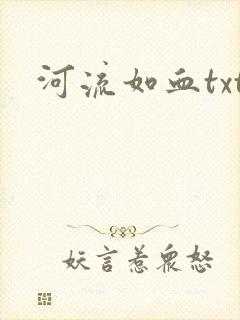 河流如血txt
妖言惹众怒